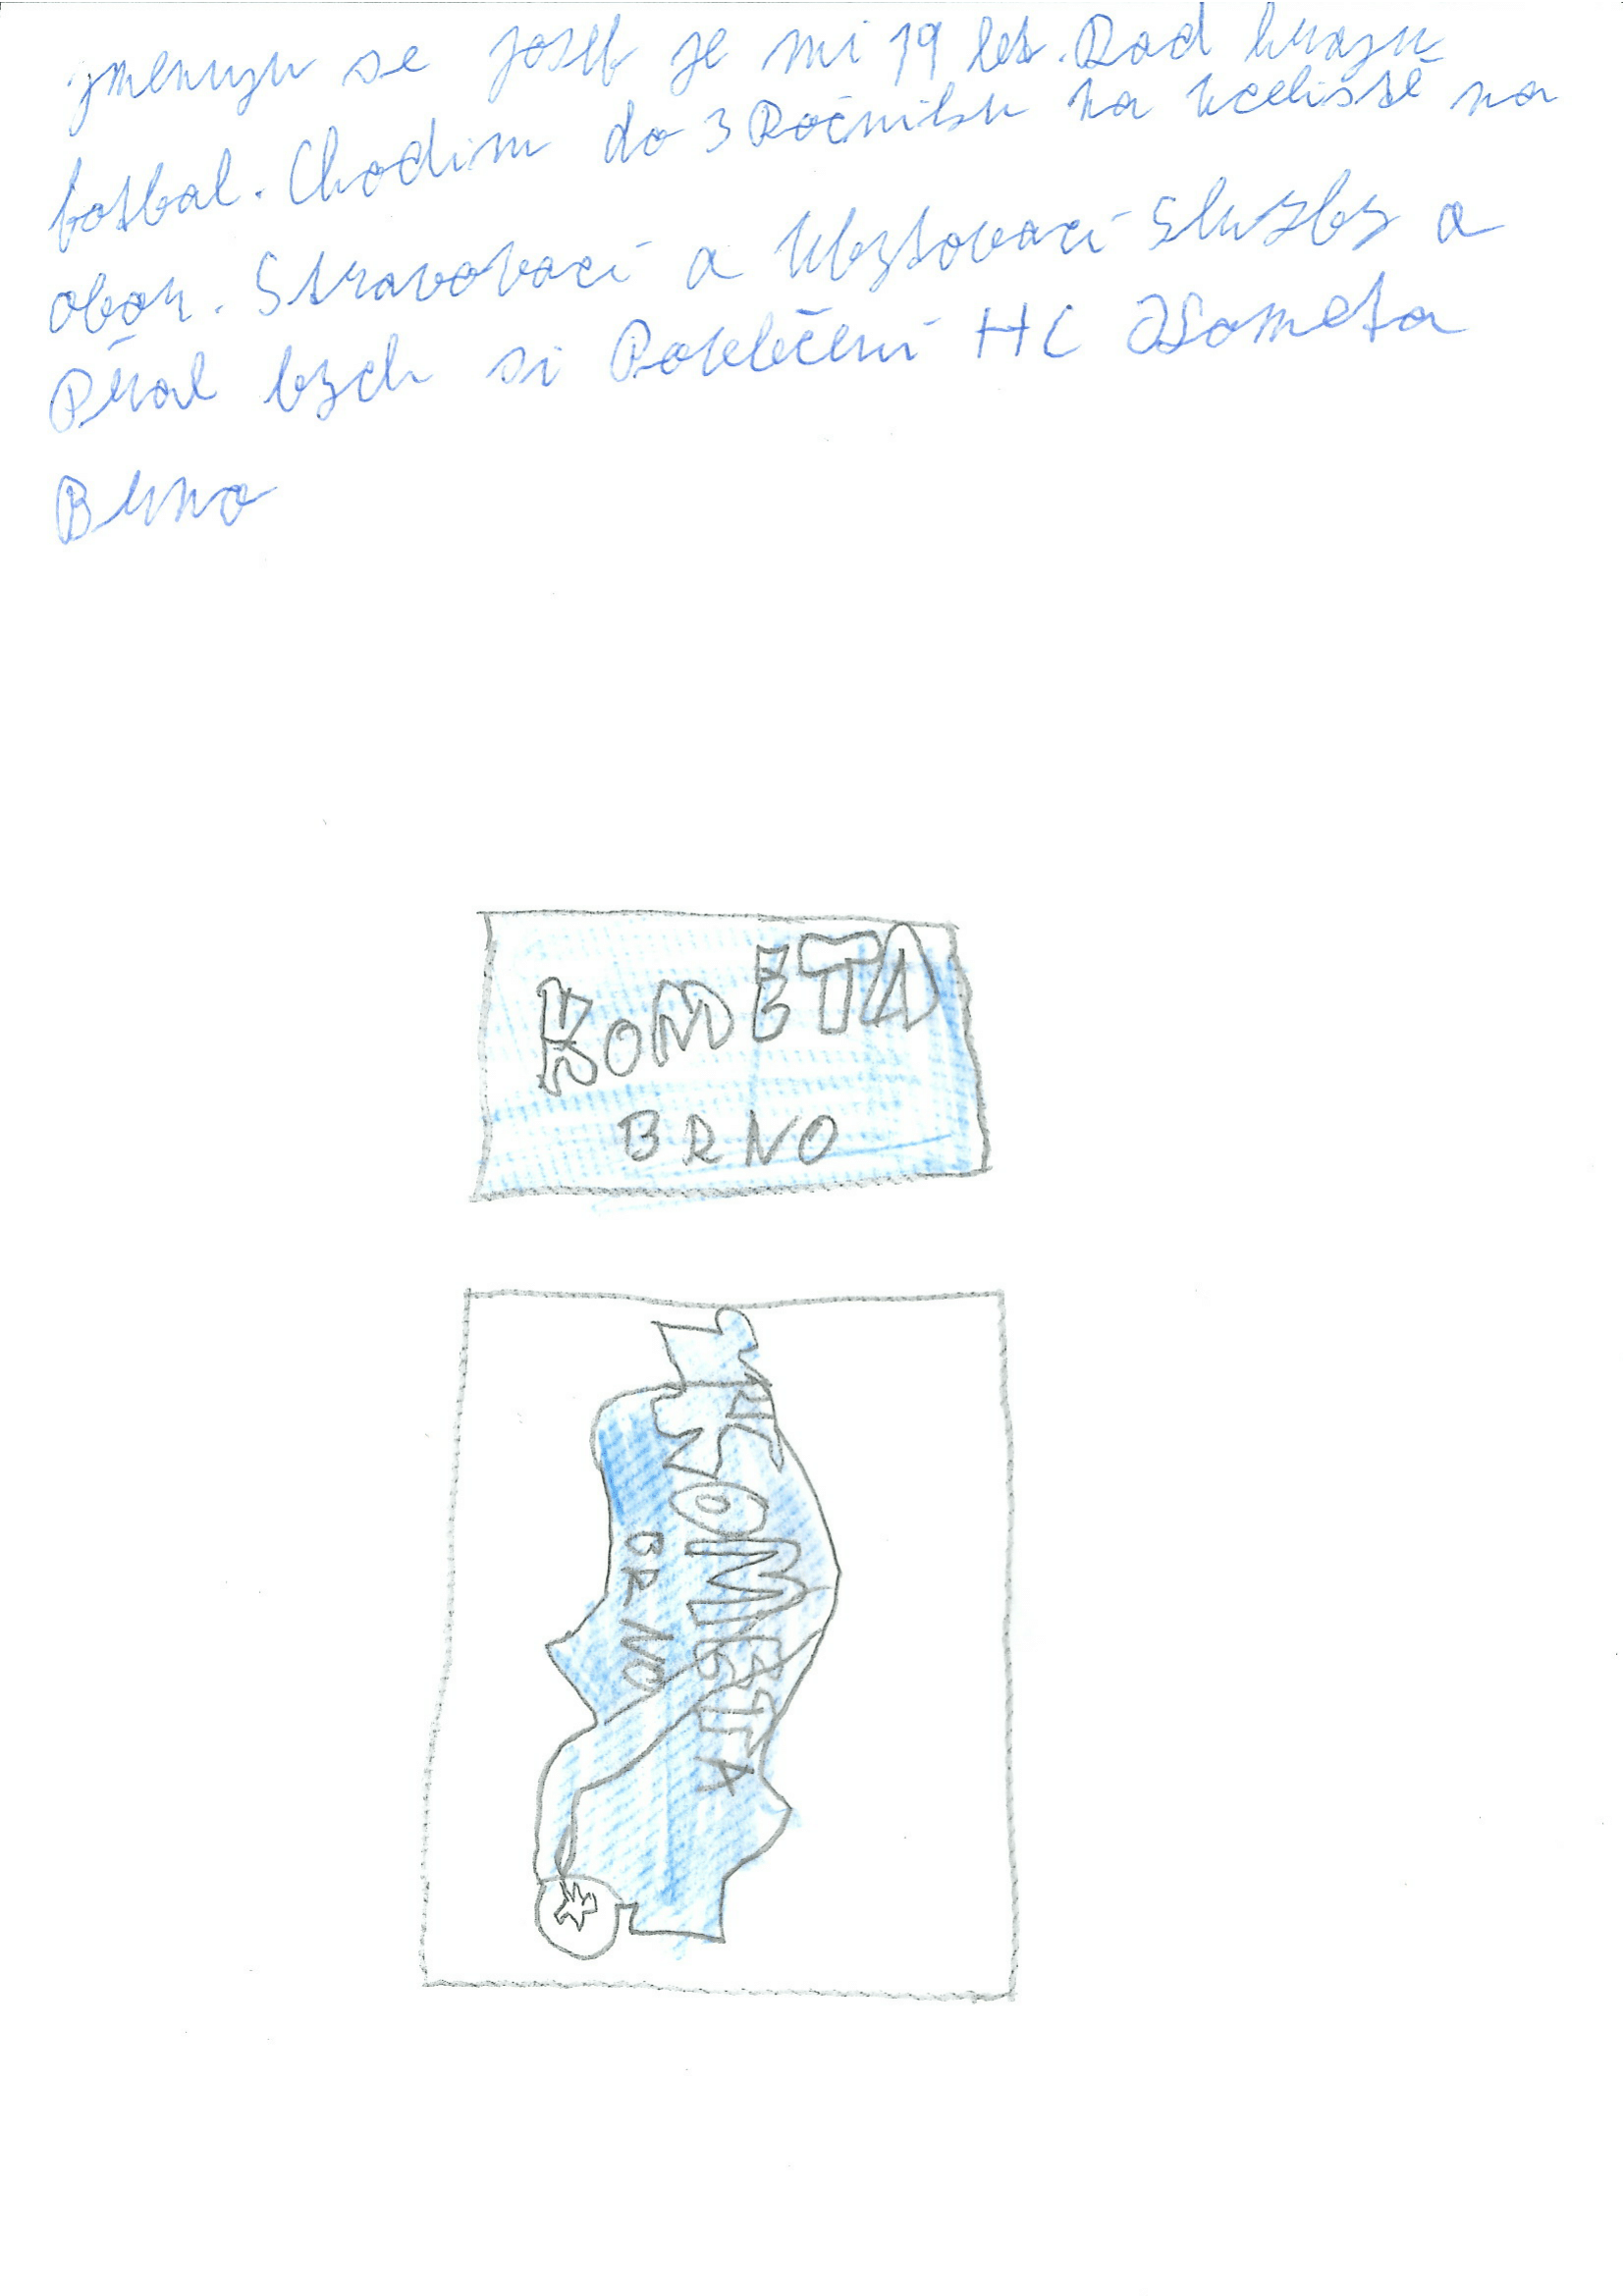 jmenuju se Josef je mi 19 let. Rad hraju
fotbal. Chodim do 3 Ročniku na učeliště na
obor. Stravovací a Ubytovací služby a
Přál bych si Povlečení HC Kometa
Brno
KOMETA
BRNO
HC
KOMETA
BRNO